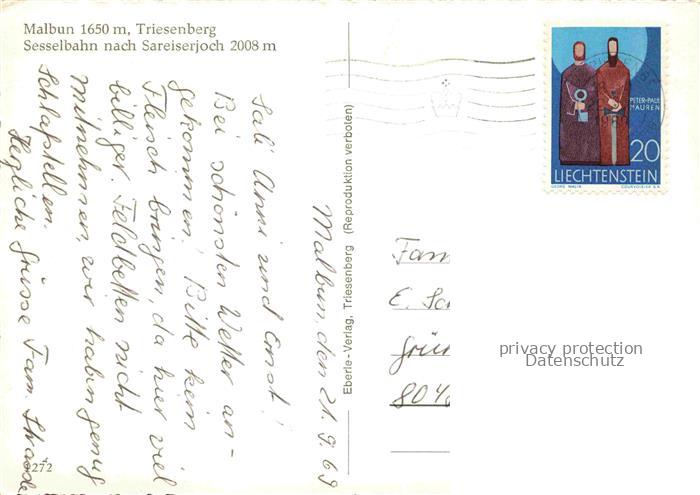 Malbun 1650 m, Triesenberg
Sesselbahn nach Sareiserjoch 2008 m
Malbun, den 21. 9. 69
Sali Anni und Ernst!
Bei schönsten Wetter an-
gekommen! Bitte kein
Fleisch bringen, da hier viel
billiger. Feldbetten nicht
mitnehmen, wir haben genug
Schlafstellen.
Herzliche Grüsse Fam.
4272
Eberle-Verlag, Triesenberg (Reproduktion verboten)
PETER-PAUL
MAUREN
20
LIECHTENSTEIN
GEORG MALIN COURVOISIER S.A.
Fam
E. Sc
Grün
804
privacy protection
Datenschutz